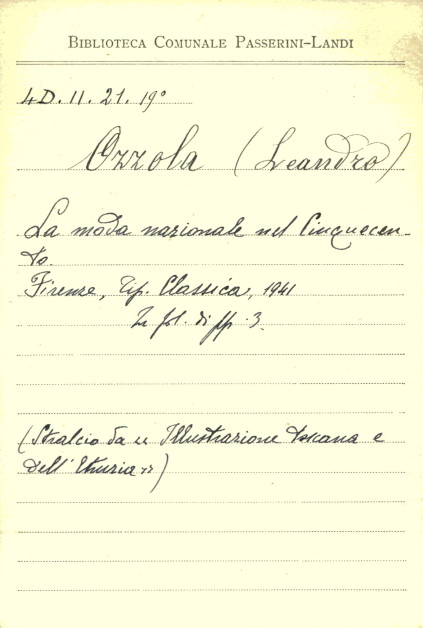 BIBLIOTECA COMUNALE PASSERINI-LANDI
4D. 11. 21. 19°
Ozzola (Leandro)
La moda nazionale nel Cinquecen-
to.
Firenze, Tip. Classica, 1941
In fol. di pp. 3.
(Stralcio da "Illustrazione toscana e
dell'Etruria")